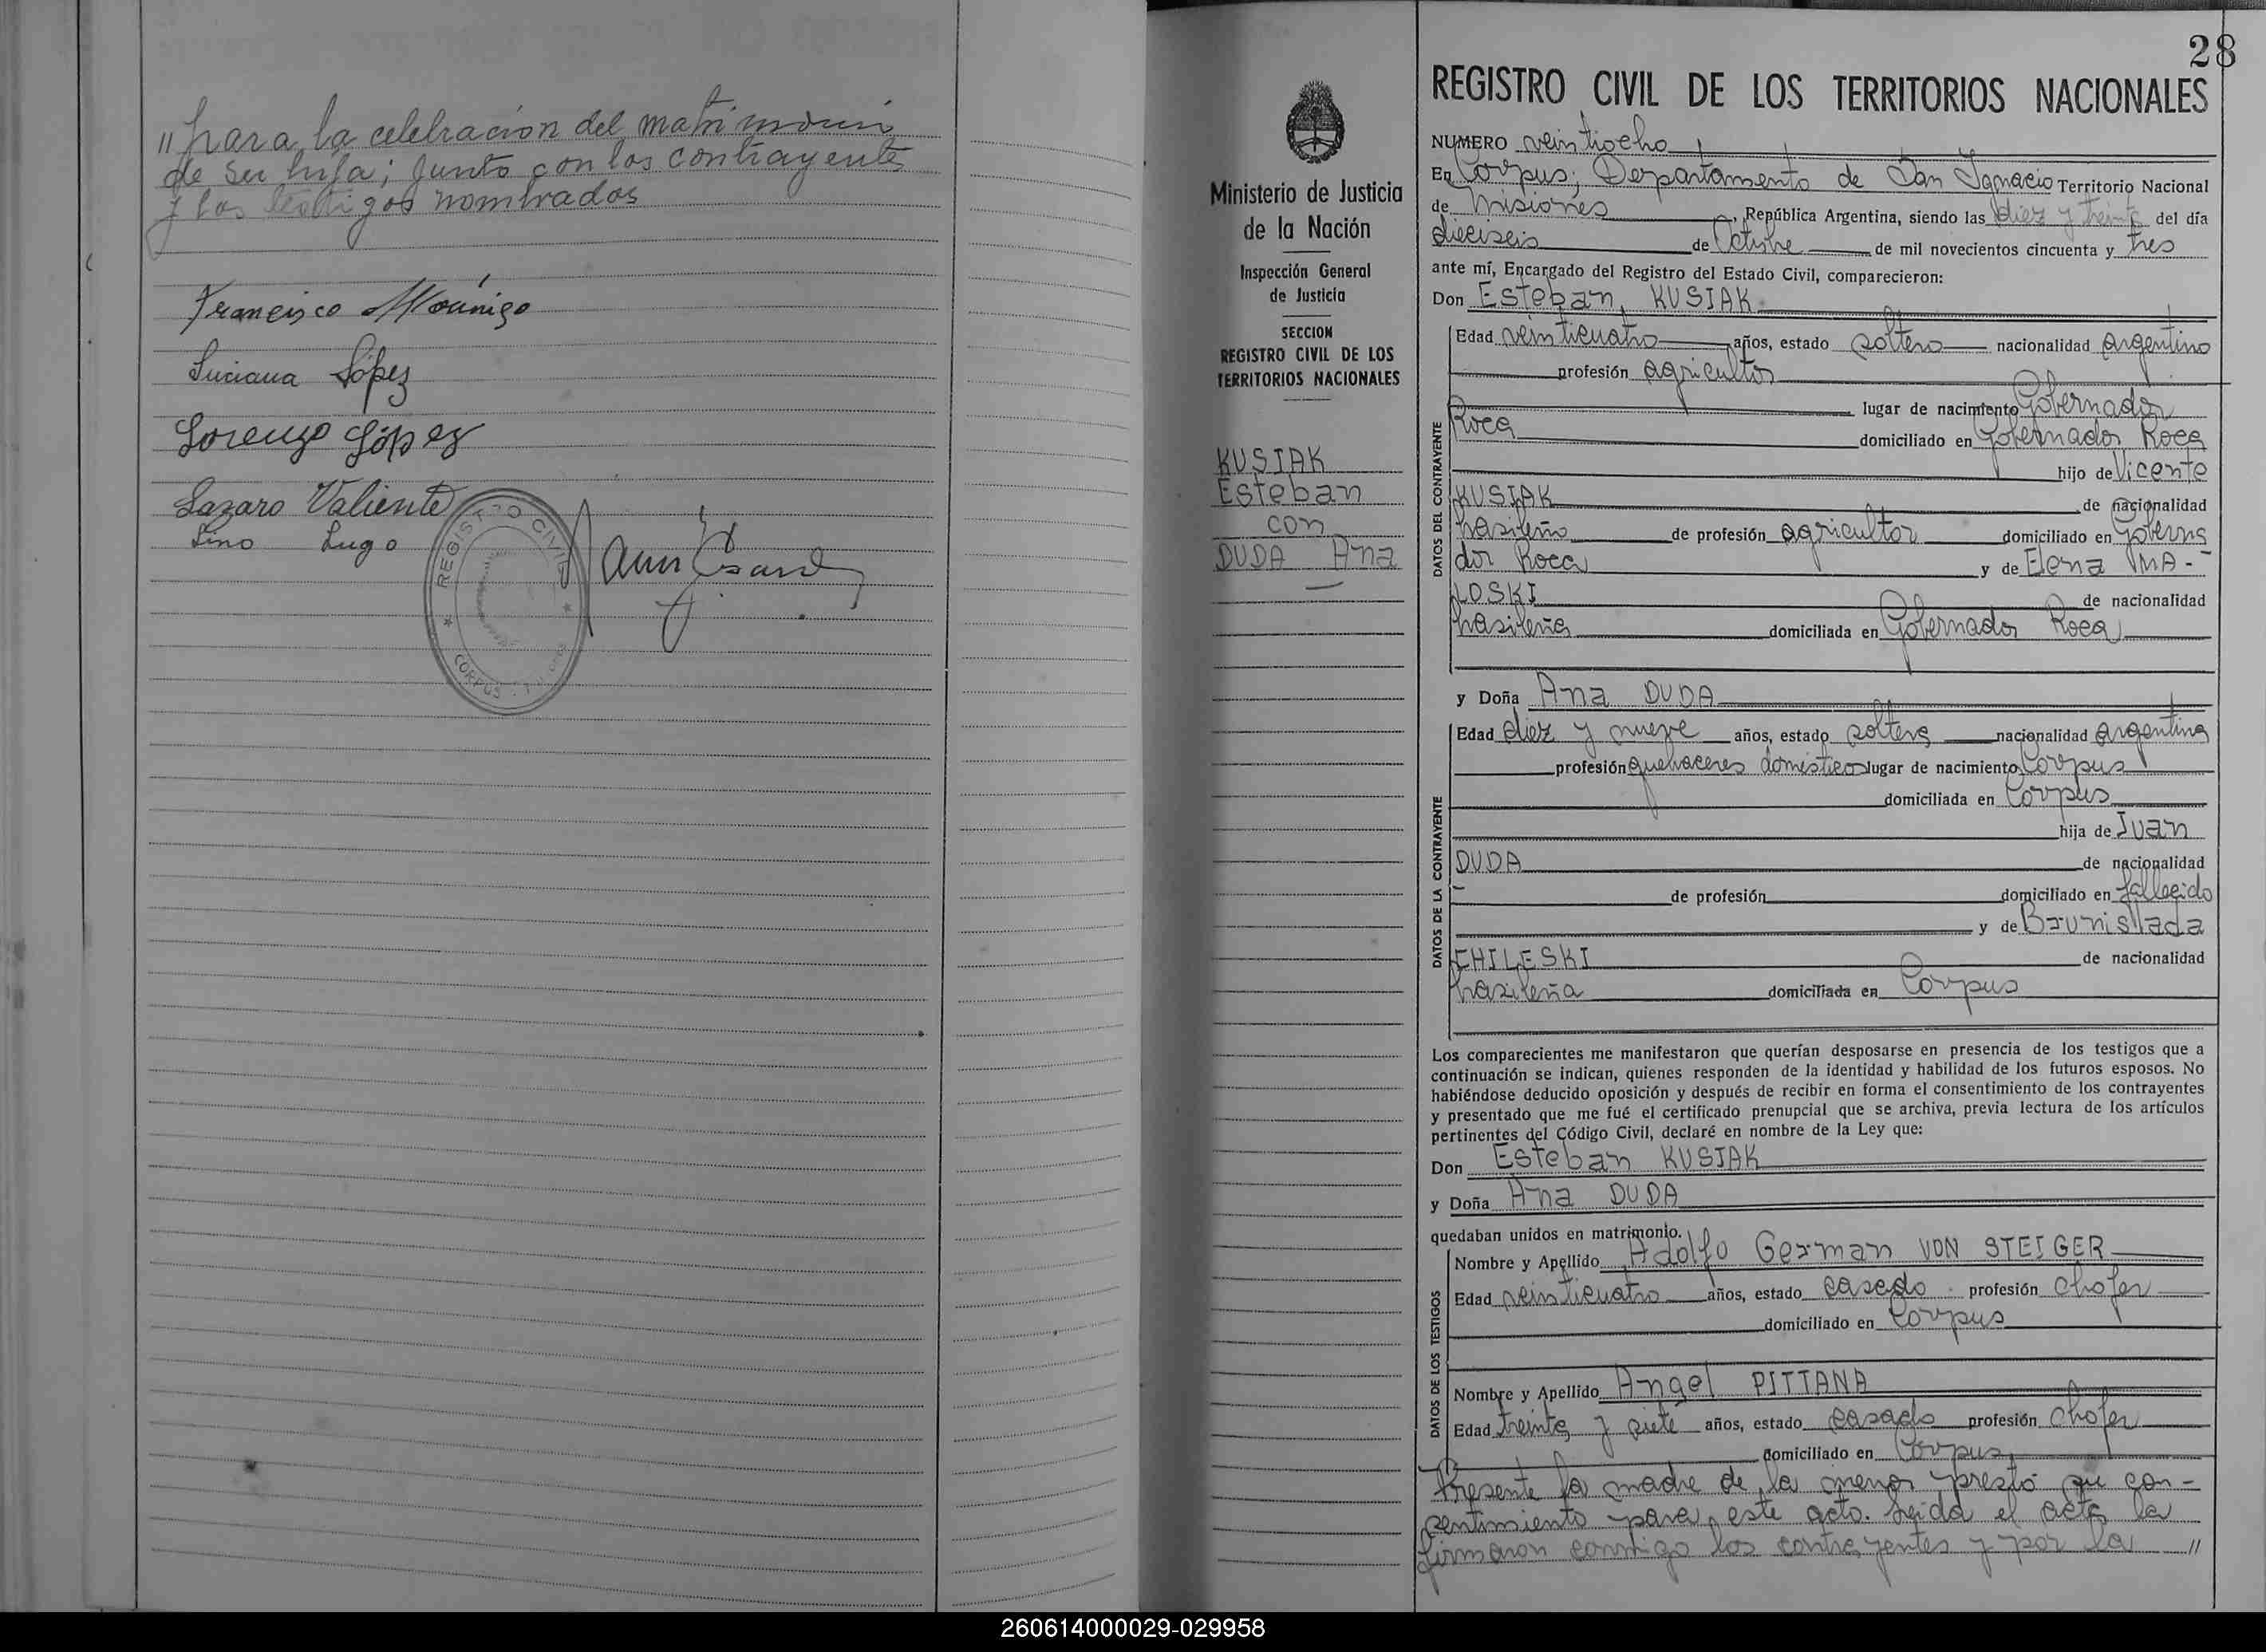 "para la celebración del matrimonio
de su hija; junto con los contrayentes
y los testigos nombrados
Francisco Mouniga
Luciana López
Lorenzo López
Lazaro Valiente
Lino Lugo
REGISTRO CIVIL
CORPUS
28
Ministerio de Justicia
de la Nación
Inspección General
de Justicia
SECCION
REGISTRO CIVIL DE LOS
TERRITORIOS NACIONALES
KUSIAK
Esteban
con
DUDA Ana
REGISTRO CIVIL DE LOS TERRITORIOS NACIONALES
NUMERO veintiocho
En Corpus, Departamento de San Ignacio Territorio Nacional
de Misiones, República Argentina, siendo las diez y treinta del día
dieciseis de Octubre de mil novecientos cincuenta y tres
ante mí, Encargado del Registro del Estado Civil, comparecieron:
Don Esteban KUSIAK
DATOS DEL CONTRAYENTE
Edad veinticuatro años, estado soltero nacionalidad argentino
profesión agricultor
lugar de nacimiento Gobernador
Roca domiciliado en Gobernador Roca
hijo de Vicente
KUSIAK de nacionalidad
brasileño de profesión agricultor domiciliado en Goberna
dor Roca y de Elena MA-
LOSKI de nacionalidad
brasileña domiciliada en Gobernador Roca
y Doña Ana DUDA
DATOS DE LA CONTRAYENTE
Edad diez y nueve años, estado soltera nacionalidad argentina
profesión quehaceres domésticos lugar de nacimiento Corpus
domiciliada en Corpus
hija de Juan
DUDA de nacionalidad
- de profesión domiciliado en fallecido
y de Brunislada
CHILESKI de nacionalidad
brasileña domiciliada en Corpus
Los comparecientes me manifestaron que querían desposarse en presencia de los testigos que a
continuación se indican, quienes responden de la identidad y habilidad de los futuros esposos. No
habiéndose deducido oposición y después de recibir en forma el consentimiento de los contrayentes
y presentado que me fué el certificado prenupcial que se archiva, previa lectura de los artículos
pertinentes del Código Civil, declaré en nombre de la Ley que:
Don Esteban KUSIAK
y Doña Ana DUDA
quedaban unidos en matrimonio.
DATOS DE LOS TESTIGOS
Nombre y Apellido Adolfo German VON STEIGER
Edad veinticuatro años, estado casado profesión chofer
domiciliado en Corpus
Nombre y Apellido Angel PITTANA
Edad treinta y siete años, estado casado profesión chofer
domiciliado en Corpus
Presente la madre de la menor prestó su con-
sentimiento para este acto. Leida el acta la
firmaron conmigo los contrayentes y por la "
260614000029-029958